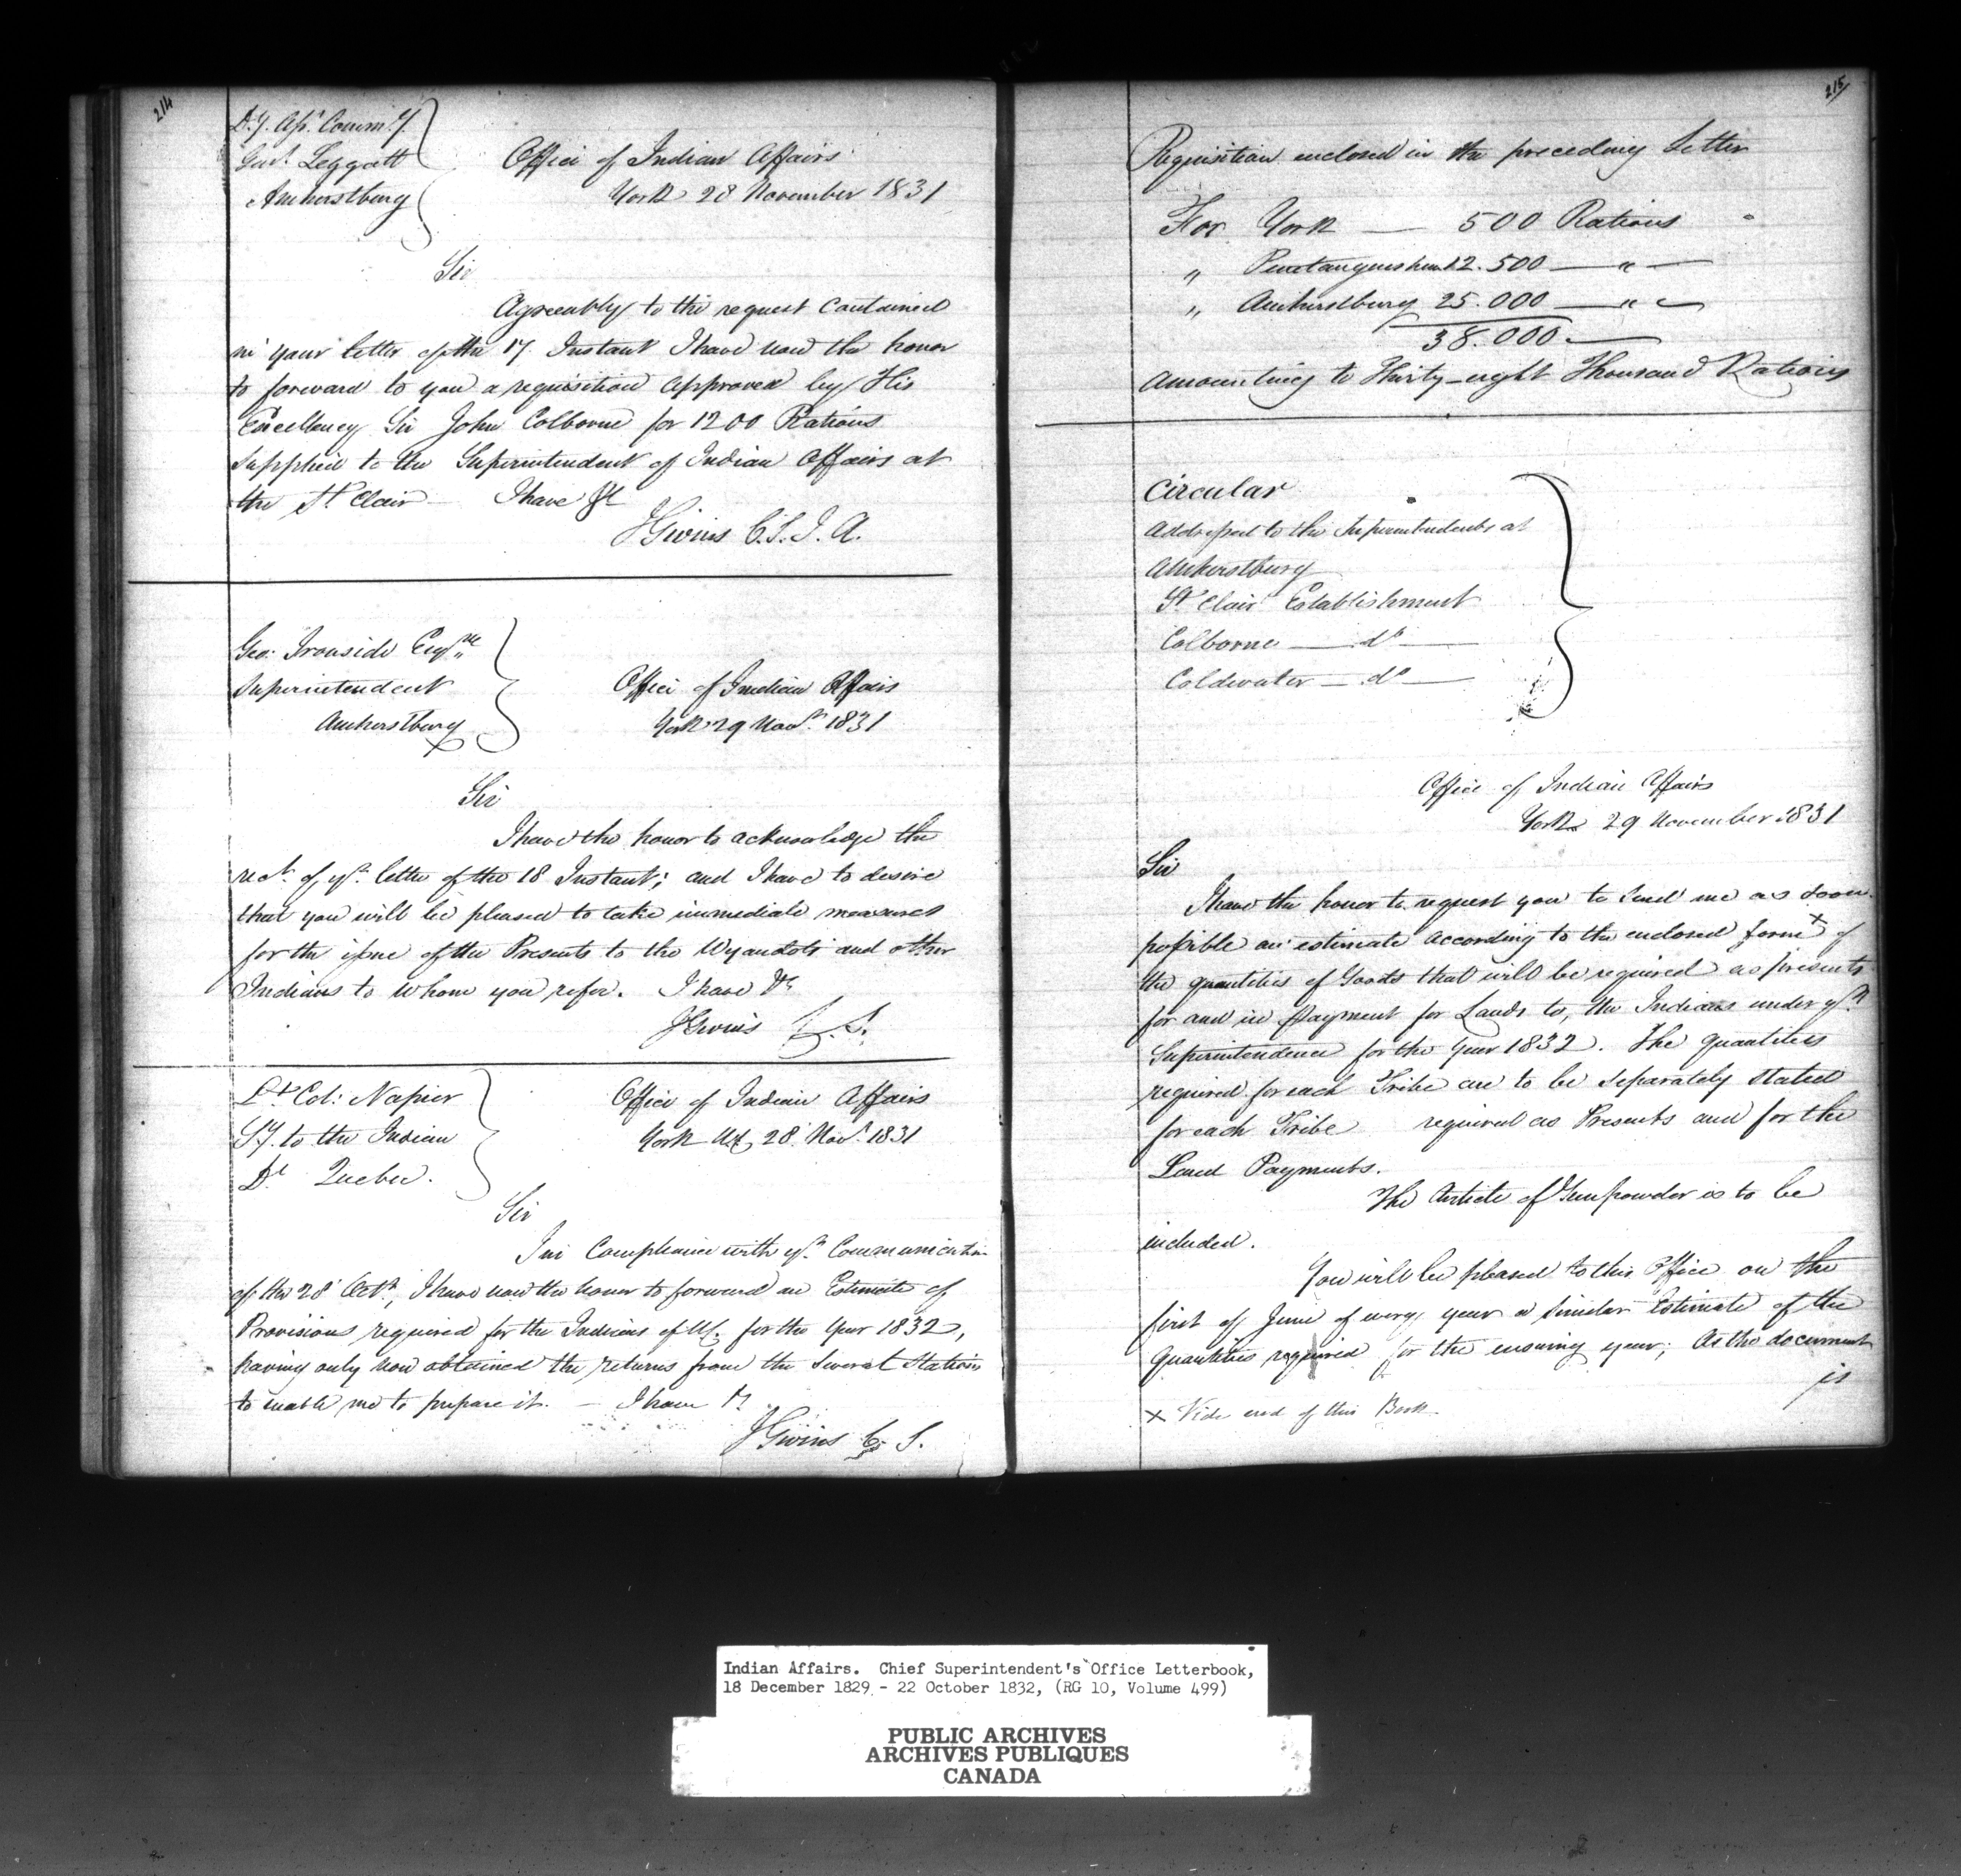 214
Dy. Asst. Commy.
Genl. Leggatt
Amherstburg
Office of Indian Affairs
York 28 November 1831
Sir
Agreeably to the request contained
in your letter of the 17 Instant I have now the honor
to forward to you a requisition approved by His
Excellency Sir John Colborne for 1200 Rations
supplied to the Superintendent of Indian Affairs at
the St. Clair — I have &c
J Givins C.S.I.A.
Geo: Ironside Esqre
Superintendent
Amherstburg
Office of Indian Affairs
York 29 Novr. 1831
Sir
I have the honor to acknowledge the
rect. of yr. letter of the 18 Instant; and I have to desire
that you will be pleased to take immediate measures
for the issue of the Presents to the Wyandots and other
Indians to whom you refer. I have &c
J Givins C.S.
Lt. Col: Napier
Sy. to the Indian
Dt. Quebec.
Office of Indian Affairs
York UC, 28 Novr. 1831
Sir
In Compliance with yr. Communication
of the 28 Octr., I have now the honor to forward an Estimate of
Provisions required for the Indians of UC. for the Year 1832,
having only now obtained the returns from the several Stations
to enable me to prepare it. — I have &c
J Givins C. S.
215
Requisition enclosed in the preceding Letter
For York — 500 Rations
" Penetanguishene 12.500 — " —
" Amherstburg 25.000 — " —
38.000 —
Amounting to Thirty-eight Thousand Rations
Circular
Addressed to the Superintendents at
Amherstburg
St. Clair Establishment
Colborne — do —
Coldwater — do —
Office of Indian Affairs
York 29 November 1831
Sir
I have the honor to request you to send me as soon
possible an estimate according to the enclosed form x of
the quantities of Goods that will be required as presents
for and in payment for Lands to, the Indians under yr.
Superintendence for the Year 1832. The quantities
required for each Tribe are to be separately stated
for each Tribe required as Presents and for the
Land Payments.
The Article of Gunpowder is to be
included.
You will be pleased to this Office on the
first of June of every year a similar Estimate of the
quantities required for the ensuing year; As the document
is
x Vide end of this Book.
Indian Affairs. Chief Superintendent's Office Letterbook,
18 December 1829 - 22 October 1832, (RG 10, Volume 499)
PUBLIC ARCHIVES
ARCHIVES PUBLIQUES
CANADA